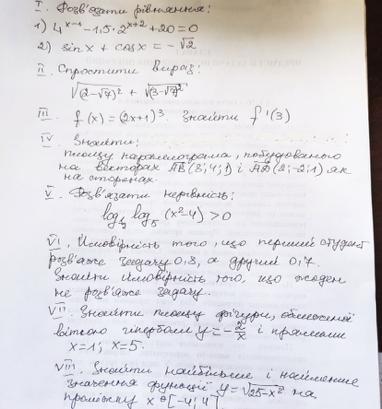 I. Розв'язати рівняння:
1) 4^(x-1) - 1,5·2^(x+2) + 20 = 0
2) sin x + cos x = -√2
II. Спростити вираз:
√((2-√7)² + √(3-√7)²
III. f(x) = (2x+1)³. Знайти f'(3)
IV Знайти:
площу паралелограма, побудованого
на векторах AB(3;4;1) і AD(2;-2;1) як
на сторонах.
V. Розв'язати нерівність:
log₅ (x²-4) > 0
VI. Ймовірність того, що перший студент
розв'яже задачу 0,8, а другий 0,7.
Знайти ймовірність того, що жоден
не розв'яже задачу.
VII. Знайти площу фігури, обмеженої
віткою гіперболи y = -2/x і прямими
x=1; x=5.
VIII. Знайти найбільше і найменше
значення функції y = √(25-x²) на
проміжку x ∈ [-4; 4]